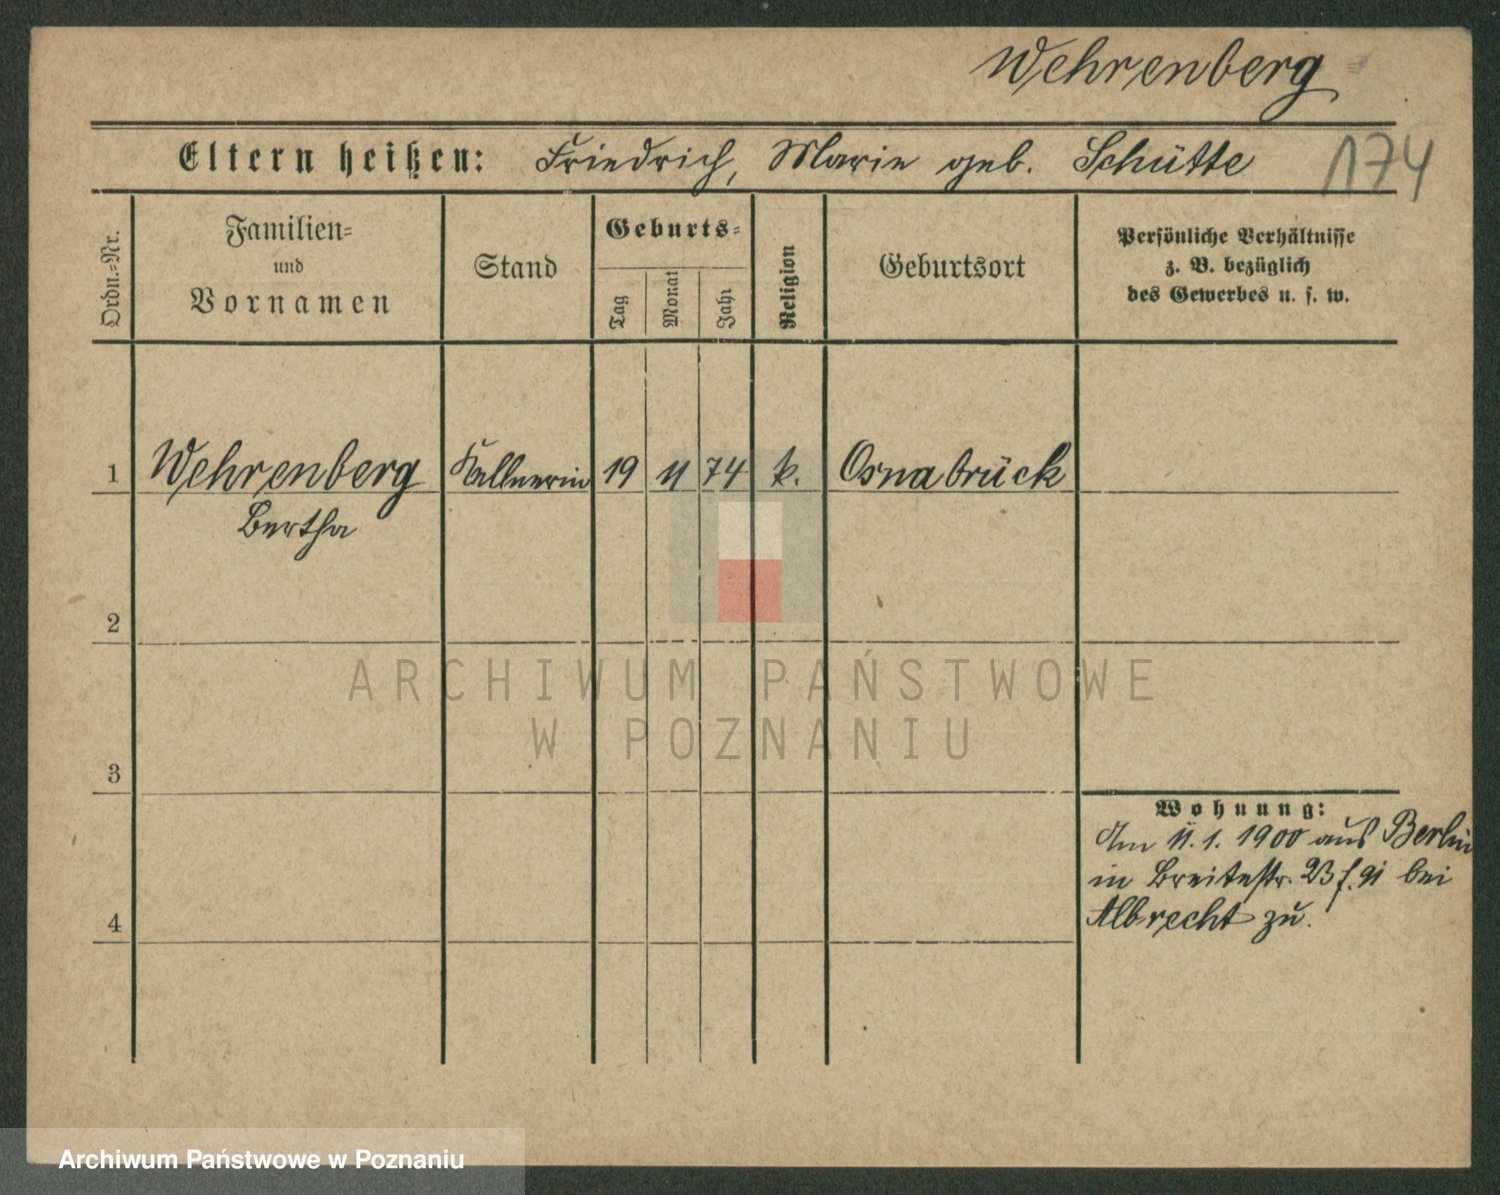 Wehrenberg
Eltern heißen: Friedrich, Marie geb. Schütte
174
Ordn.-Nr.
Familien-
und
Vornamen
Stand
Geburts-
Tag
Monat
Jahr
Religion
Geburtsort
Persönliche Verhältnisse
z. B. bezüglich
des Gewerbes u. s. w.
1 Wehrenberg Kellnerin 19 11 74 k. Osnabrück
Bertha
2
ARCHIWUM PAŃSTWOWE
W POZNANIU
3
Wohnung:
Am 11.1. 1900 aus Berlin
in Breitestr. 23 bei
Albrecht zu.
4
Archiwum Państwowe w Poznaniu